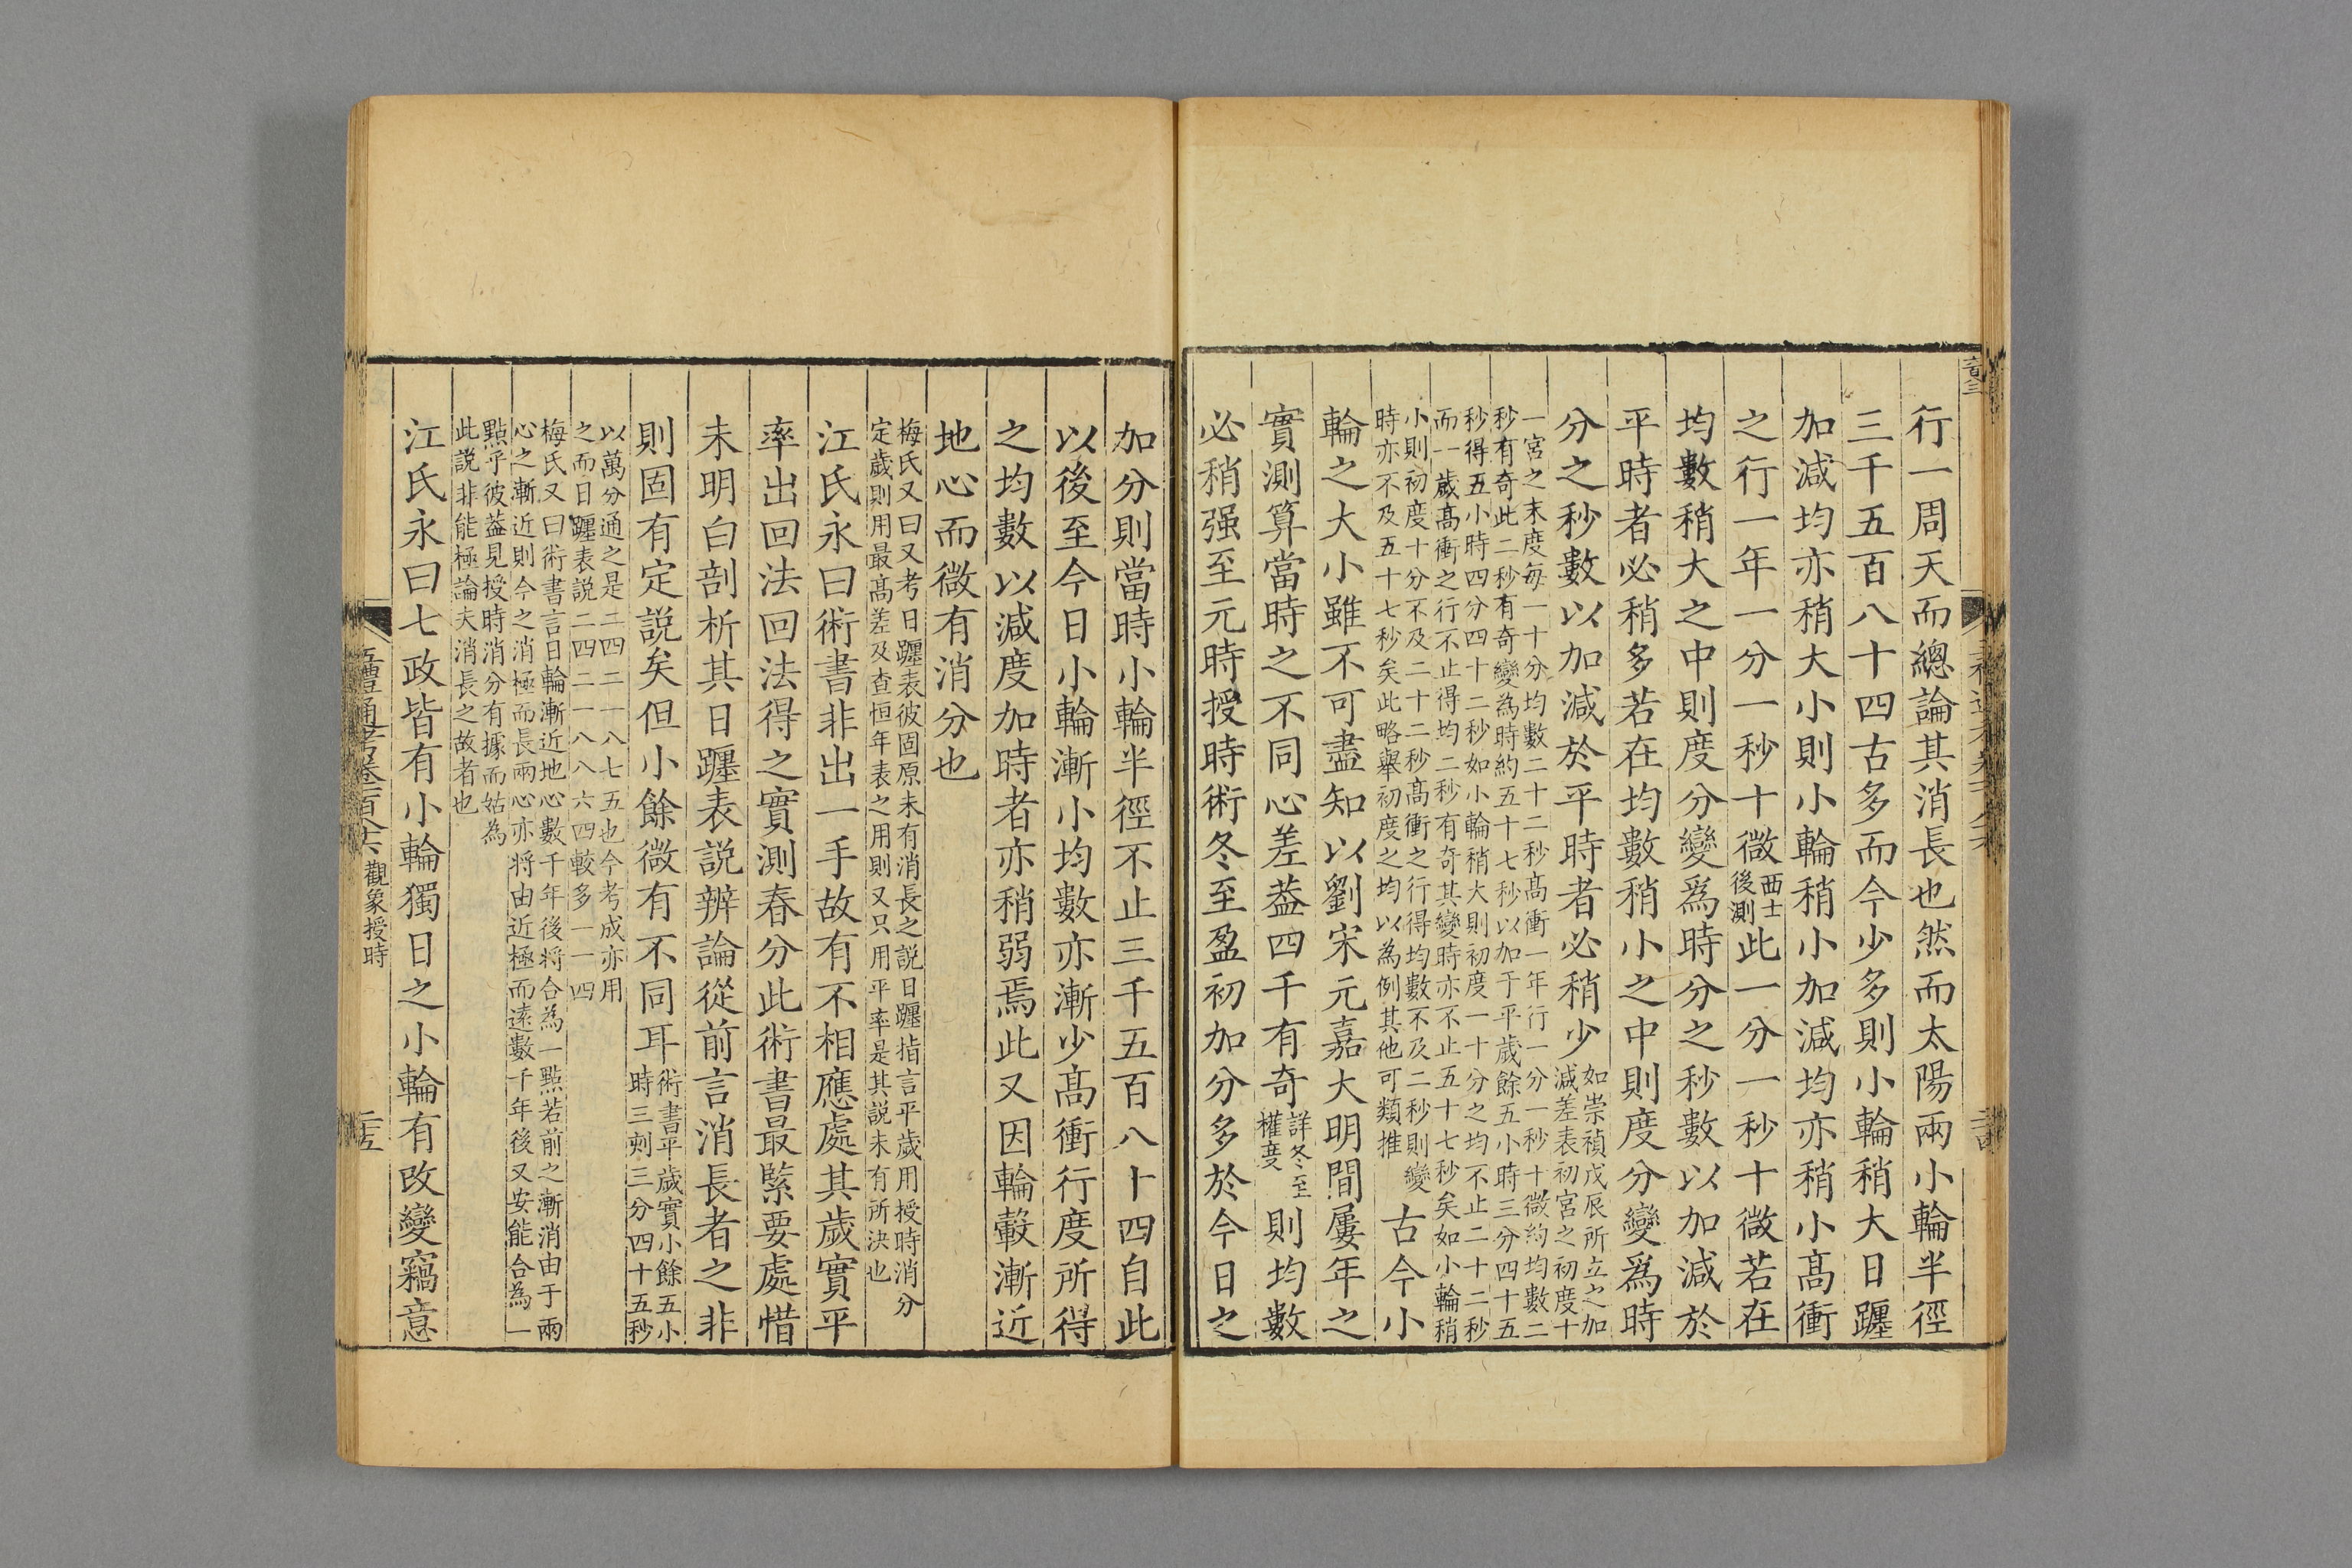 行一周天而總論其消長也然而太陽兩小輪半徑
三千五百八十四古多而今少多則小輪稍大日躔
加減均亦稍大小則小輪稍小加減均亦稍小高衝
之行一年一分一秒十微西士後測此一分一秒十微若在
均數稍大之中則度分變爲時分之秒數以加減於
平時者必稍多若在均數稍小之中則度分變爲時
分之秒數以加減於平時者必稍少如崇禎戊辰所立之加減差表初宮之初度十
一宮之末度每一十分均數二十二秒高衝一年行一分一秒十微約均數二
秒有奇此二秒有奇變為時約五十七秒以加于平歲餘五小時三分四十五
秒得五小時四分四十二秒如小輪稍大則初度一十分之均不止二十二秒
而一歲高衝之行不止得均二秒有奇其變時亦不止五十七秒矣如小輪稍
小則初度十分不及二十二秒高衝之行得均數不及二秒則變
時亦不及五十七秒矣此略舉初度之均以為例其他可類推
古今小
輪之大小雖不可盡知以劉宋元嘉大明間屢年之
實測算當時之不同心差葢四千有奇詳冬至權度則均數
必稍强至元時授時術冬至盈初加分多於今日之
加分則當時小輪半徑不止三千五百八十四自此
以後至今日小輪漸小均數亦漸少高衝行度所得
之均數以減度加時者亦稍弱焉此又因輪轂漸近
地心而微有消分也
梅氏又曰又考日躔表彼固原未有消長之説日躔指言平歲用授時消分
定歲則用最高差及查恒年表之用則又只用平率是其説未有所決也
江氏永曰術書非出一手故有不相應處其歲實平
率出回法回法得之實測春分此術書最緊要處惜
未明白剖析其日躔表説辨論從前言消長者之非
則固有定説矣但小餘微有不同耳術書平歲實小餘五小時三刻三分四十五秒
以萬分通之是二四二一八七五也今考成亦用
之而日躔表説二四二一八八六四較多一一四
梅氏又曰術書言日輪漸近地心數千年後将合為一點若前之漸消由于兩
心之漸近則今之消極而長兩心亦将由近極而遠數千年後又安能合為一
點乎彼葢見授時消分有據而姑為
此説非能極論夫消長之故者也
江氏永曰七政皆有小輪獨日之小輪有改變竊意
觀象授時